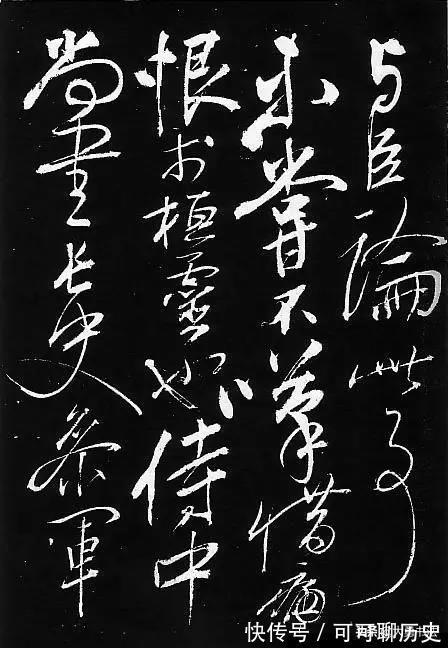 与臣論此事
未嘗不歎惜痛
恨於桓靈也侍中
尚書長史參軍
快传号 / 可可聊历史